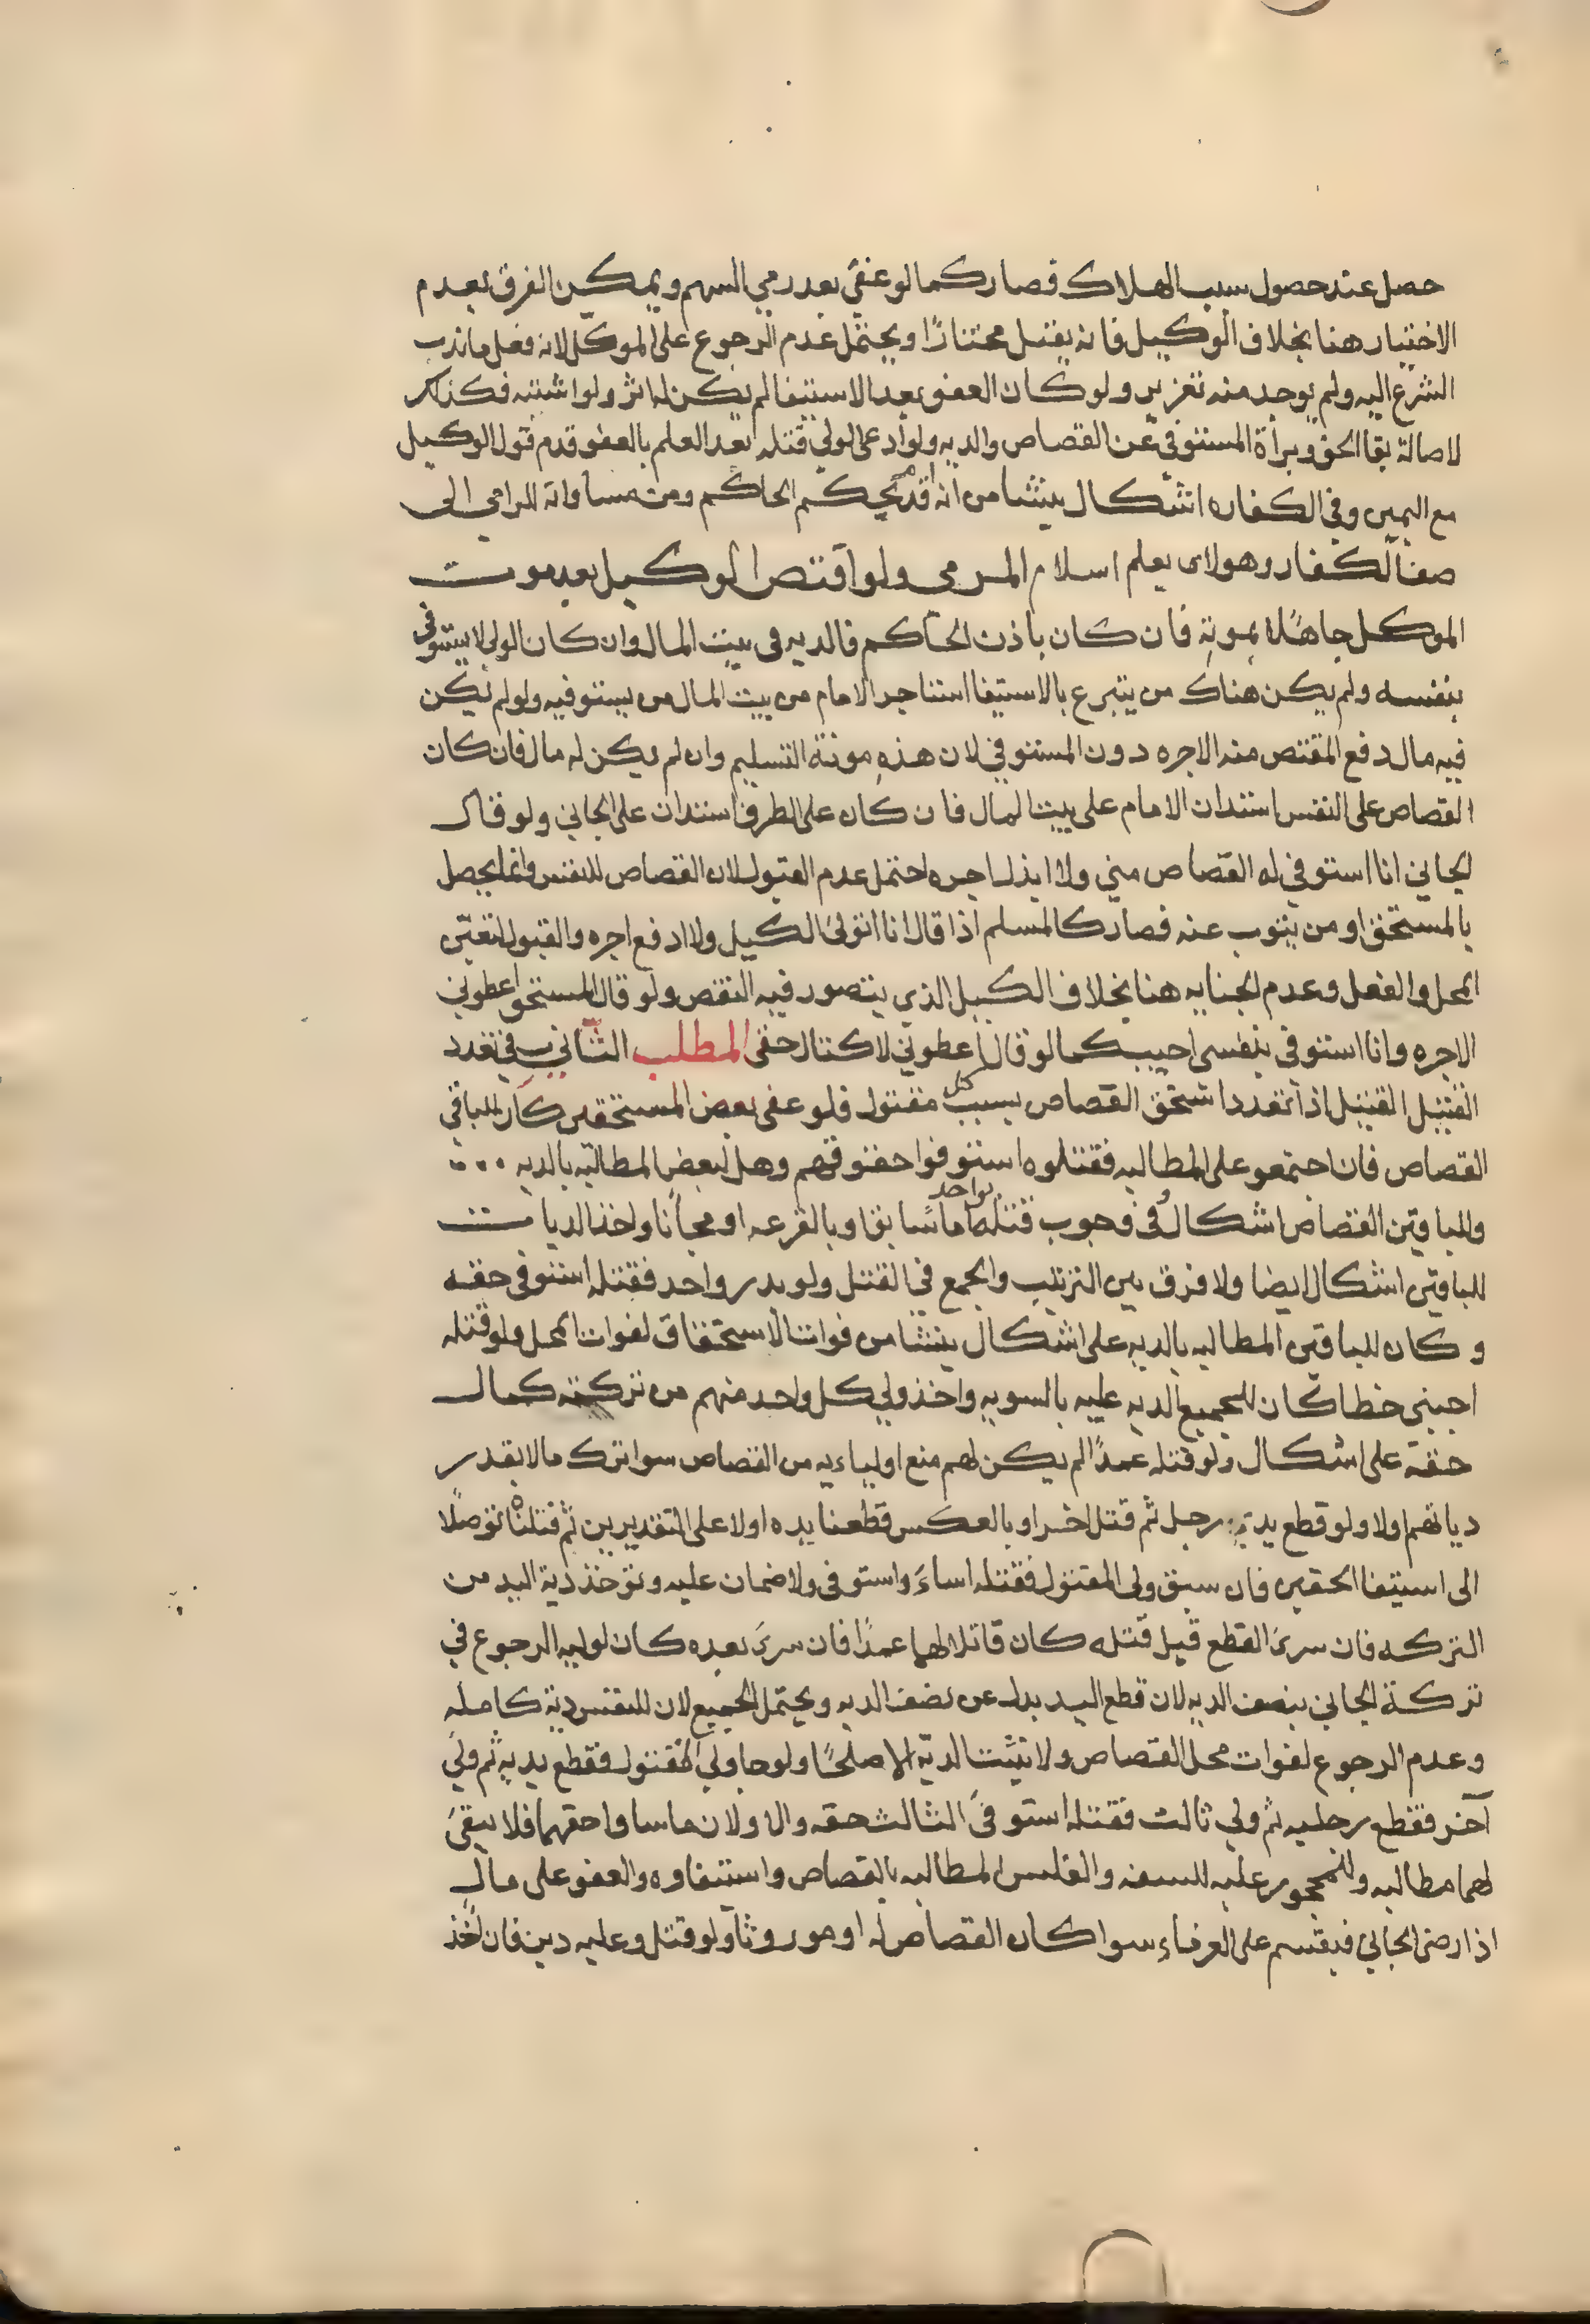 حصل عند حصول سبب الهلاك فصار كما لو عفي بعد رمي السهم ويمكن الفرق بعدم
الاختيار هنا بخلاف الوكيل فانه يقتل مختارًا ويحتمل عدم الرجوع على الموكل لانه فعل ما ندب
الشرع اليه ولم يوجد منه تغرير ولو كان العفو بعد الاستيفا لم يكن له اثر ولو اشتبه فكذلك
لاصالة بقا الحق وبرأة المستوفي عن القصاص والديه ولو ادعى الولي قتله بعد العلم بالعفو قدم قول الوكيل
مع اليمين وفي الكفاره اشكال ينشا من انه اقدم بحكم الحاكم ومن مساواته للرامي الى
صف الكفار وهو لا يعلم اسلام المرمي ولو اقتص الوكيل بعد موت
الموكل جاهلًا بموته فان كان باذن الحاكم فالديه في بيت المال وان كان الولي لا يستوفي
بنفسه ولم يكن هناك من يتبرع بالاستيفا استاجر الامام من بيت المال من يستوفيه ولو لم يكن
فيه مال دفع المقتص منه الاجره دون المستوفي لان هذه مونة التسليم وان لم يكن له مال فان كان
القصاص على النفس استدان الامام على بيت المال فان كان على الطرف استدان على الجاني ولو قال
الجاني انا استوفي له القصاص مني ولا ابذل اجره احتمل عدم القبول لان القصاص للنفس وانما يحصل
بالمستحق او من ينوب عنه فصار كالمسلم اذا قال انا اتولى الكيل ولا ادفع اجره والقبول لتعين
المحل والفعل وعدم الجنايه هنا بخلاف الكيل الذي يتصور فيه النقص ولو قال المستحق اعطوني
الاجره وانا استوفي بنفسي اجيب كما لو قال اعطوني لاكتال حقي المطلب الثاني في تعدد
القتيل القتيل اذا تعدد استحق القصاص بسبب كل مقتول فلو عفى بعض المستحقين كان للباقي
القصاص فان اجتمعو على المطالبه فقتلوه استوفوا حقوقهم وهل لبعض المطالبه بالديه
وللباقين القصاص اشكال وفي وجوب قتله بواحد اما سابق او بالقرعه او مجانًا واخذ الديات
للباقين اشكال ايضا ولا فرق بين الترتيب والجمع في القتل ولو بدر واحد فقتله استوفى حقه
وكان للباقين المطالبه بالديه على اشكال ينشا من فوات الاستحقاق لفوات المحل ولو قتله
اجنبي خطا كان للجميع الديه عليه بالسويه واخذ ولي كل واحد منهم من تركته كمال
حقه على اشكال ولو قتله عمدًا لم يكن لهم منع اولياءيه من القصاص سوا ترك مالا بقدر
دياتهم اولا ولو قطع يد رجل ثم قتل اخر او بالعكس قطعنا يده اولا على التقديرين ثم قتلناه توصلًا
الى استيفا الحقين فان سبق ولي المقتول فقتله اساء واستوفى ولا ضمان عليه وتوخذ دية اليد من
التركه فان سرى القطع قبل قتله كان قاتلا لهما عمدًا فان سرى بعده كان لوليه الرجوع في
تركة الجاني بنصف الديه لان قطع اليد بدل عن نصف الديه ويحتمل الجميع لان للنفس دية كامله
وعدم الرجوع لفوات محل القصاص ولا تثبت الدية الا صلحًا ولو جا ولي المقتول فقطع يديه ثم ولي
آخر فقطع رجليه ثم ولي ثالث فقتله استوفى الثالث حقه والاولان ما ساوا حقهما فلا يبقى
لهما مطالبه وللمحجور عليه للسفه والفلس المطالبه بالقصاص واستيفاوه والعفو على مال
اذا رضى الجاني فيقسم على الغرماء سوا كان القصاص له او موروثا ولو قتل وعليه دين فان اخذ